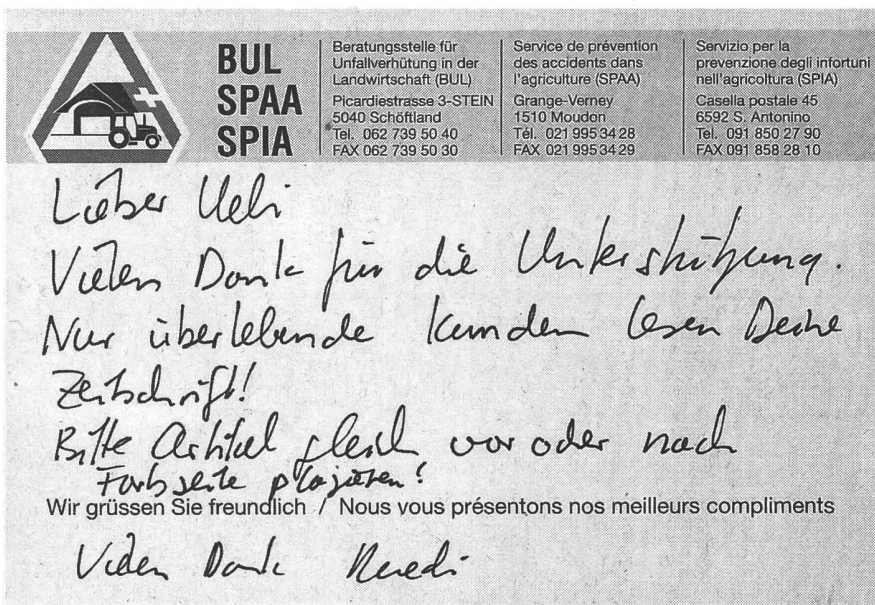 BUL
SPAA
SPIA
Beratungsstelle für
Unfallverhütung in der
Landwirtschaft (BUL)
Picardiestrasse 3-STEIN
5040 Schöftland
Tel. 062 739 50 40
FAX 062 739 50 30
Service de prévention
des accidents dans
l'agriculture (SPAA)
Grange-Verney
1510 Moudon
Tél. 021 995 34 28
FAX 021 995 34 29
Servizio per la
prevenzione degli infortuni
nell'agricoltura (SPIA)
Casella postale 45
6592 S. Antonino
Tel. 091 850 27 90
FAX 091 858 28 10
Lieber Ueli
Vielen Dank für die Unterstützung.
Nur überlebende Kunden lesen Deine
Zeitschrift!
Bitte Artikel gleich vor oder nach
Farbseite plazieren!
Wir grüssen Sie freundlich / Nous vous présentons nos meilleurs compliments
Vielen Dank Ruedi